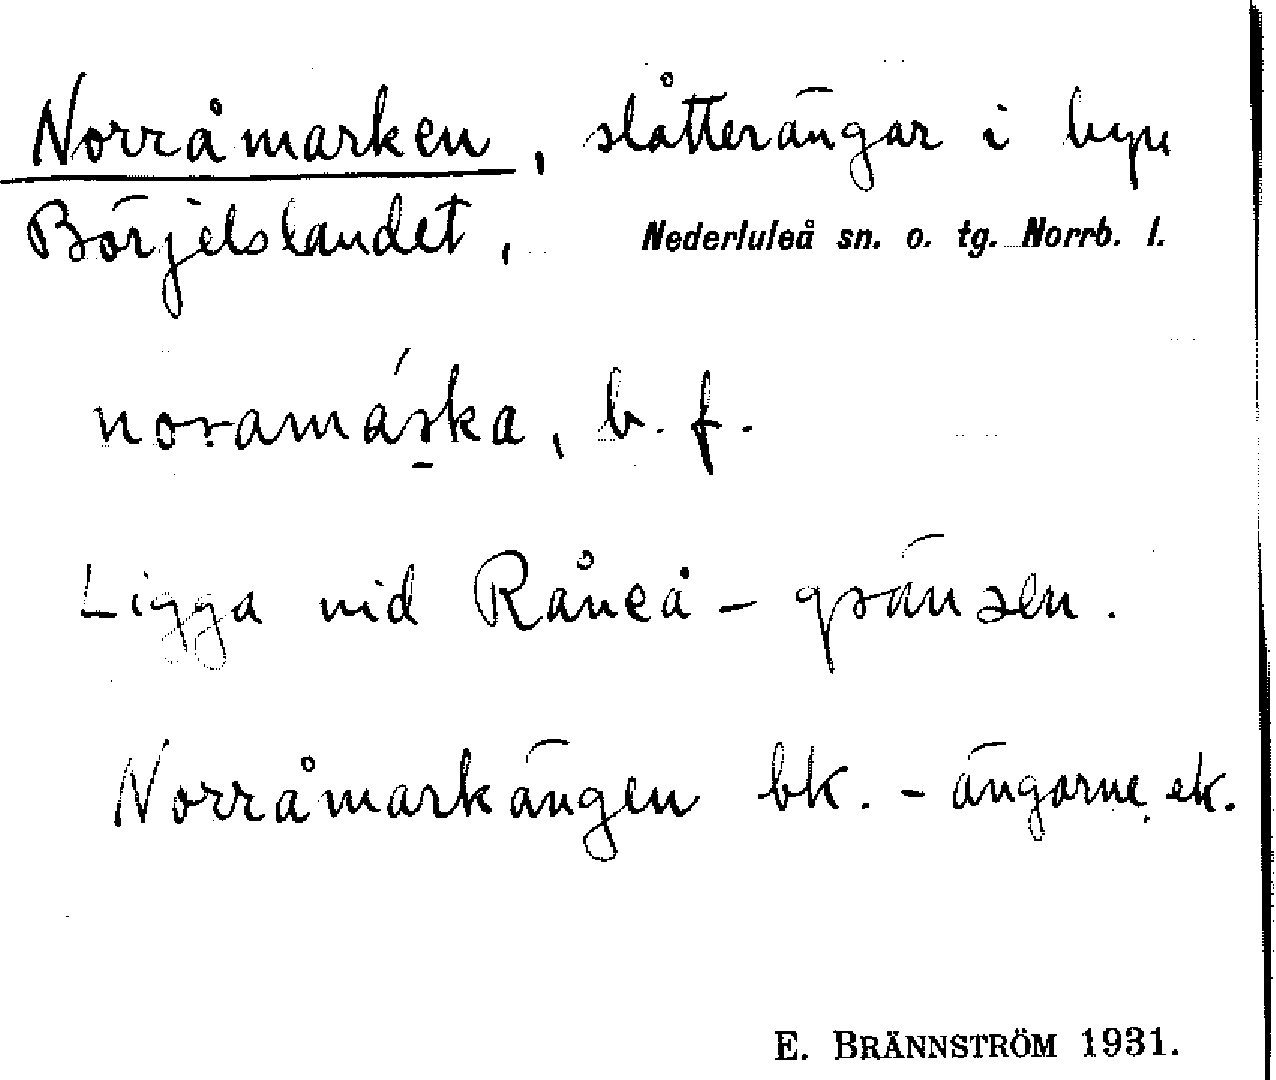 Norråmarken, slåtterängar i byn
Börjelslandet, Nederluleå sn. o. tg. Norrb. l.
noramárka, b. f.
Ligga vid Råneå - gränsen.
Norråmarkängen bk. - ängarne ek.
E. BRÄNNSTRÖM 1931.